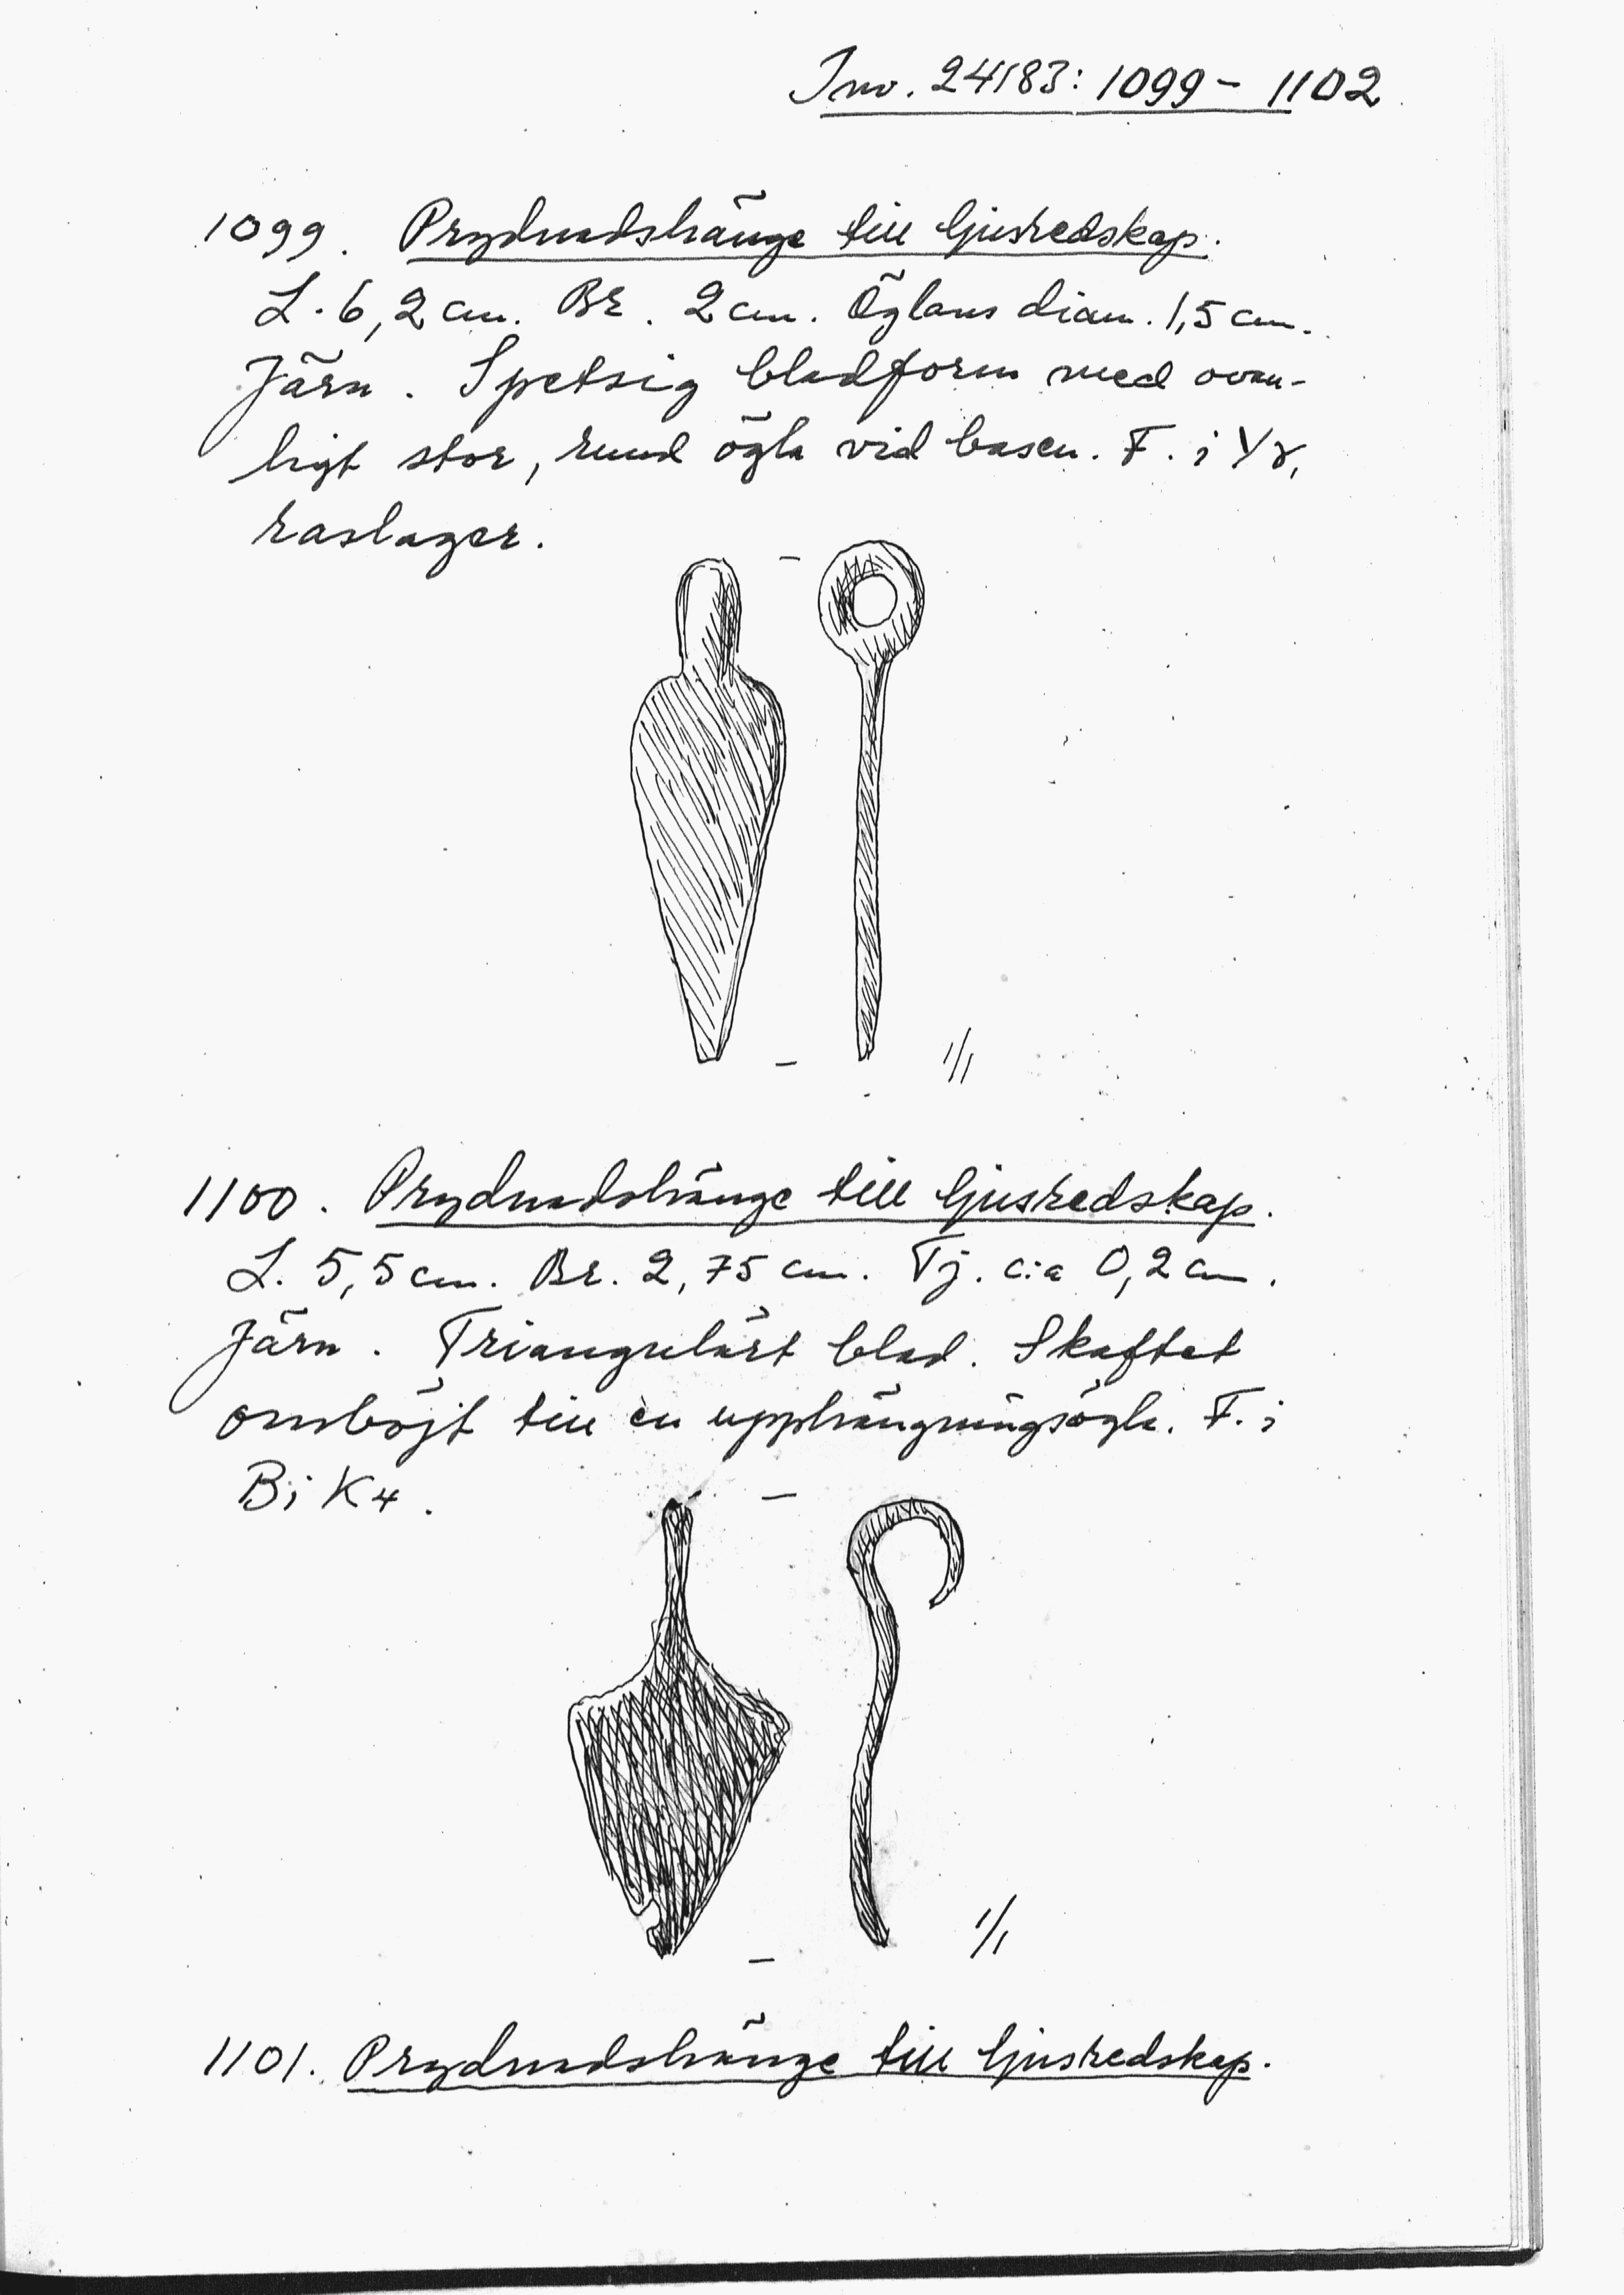 Inv. 24183: 1099 - 1102
1099. Prydnadshänge till ljusredskap.
L. 6,2 cm. Br. 2 cm. Öglans diam. 1,5 cm.
Järn. Spetsig bladform med ovan-
ligt stor, rund ögla vid basen. F. i
raslager.
1/1
1100. Prydnadshänge till ljusredskap.
L. 5,5 cm. Br. 2,75 cm. Tj. c:a 0,2 cm.
Järn. Triangulärt blad. Skaftet
omböjt till en upphängningsögla. F. i
B i K4.
1/1
1101. Prydnadshänge till ljusredskap.